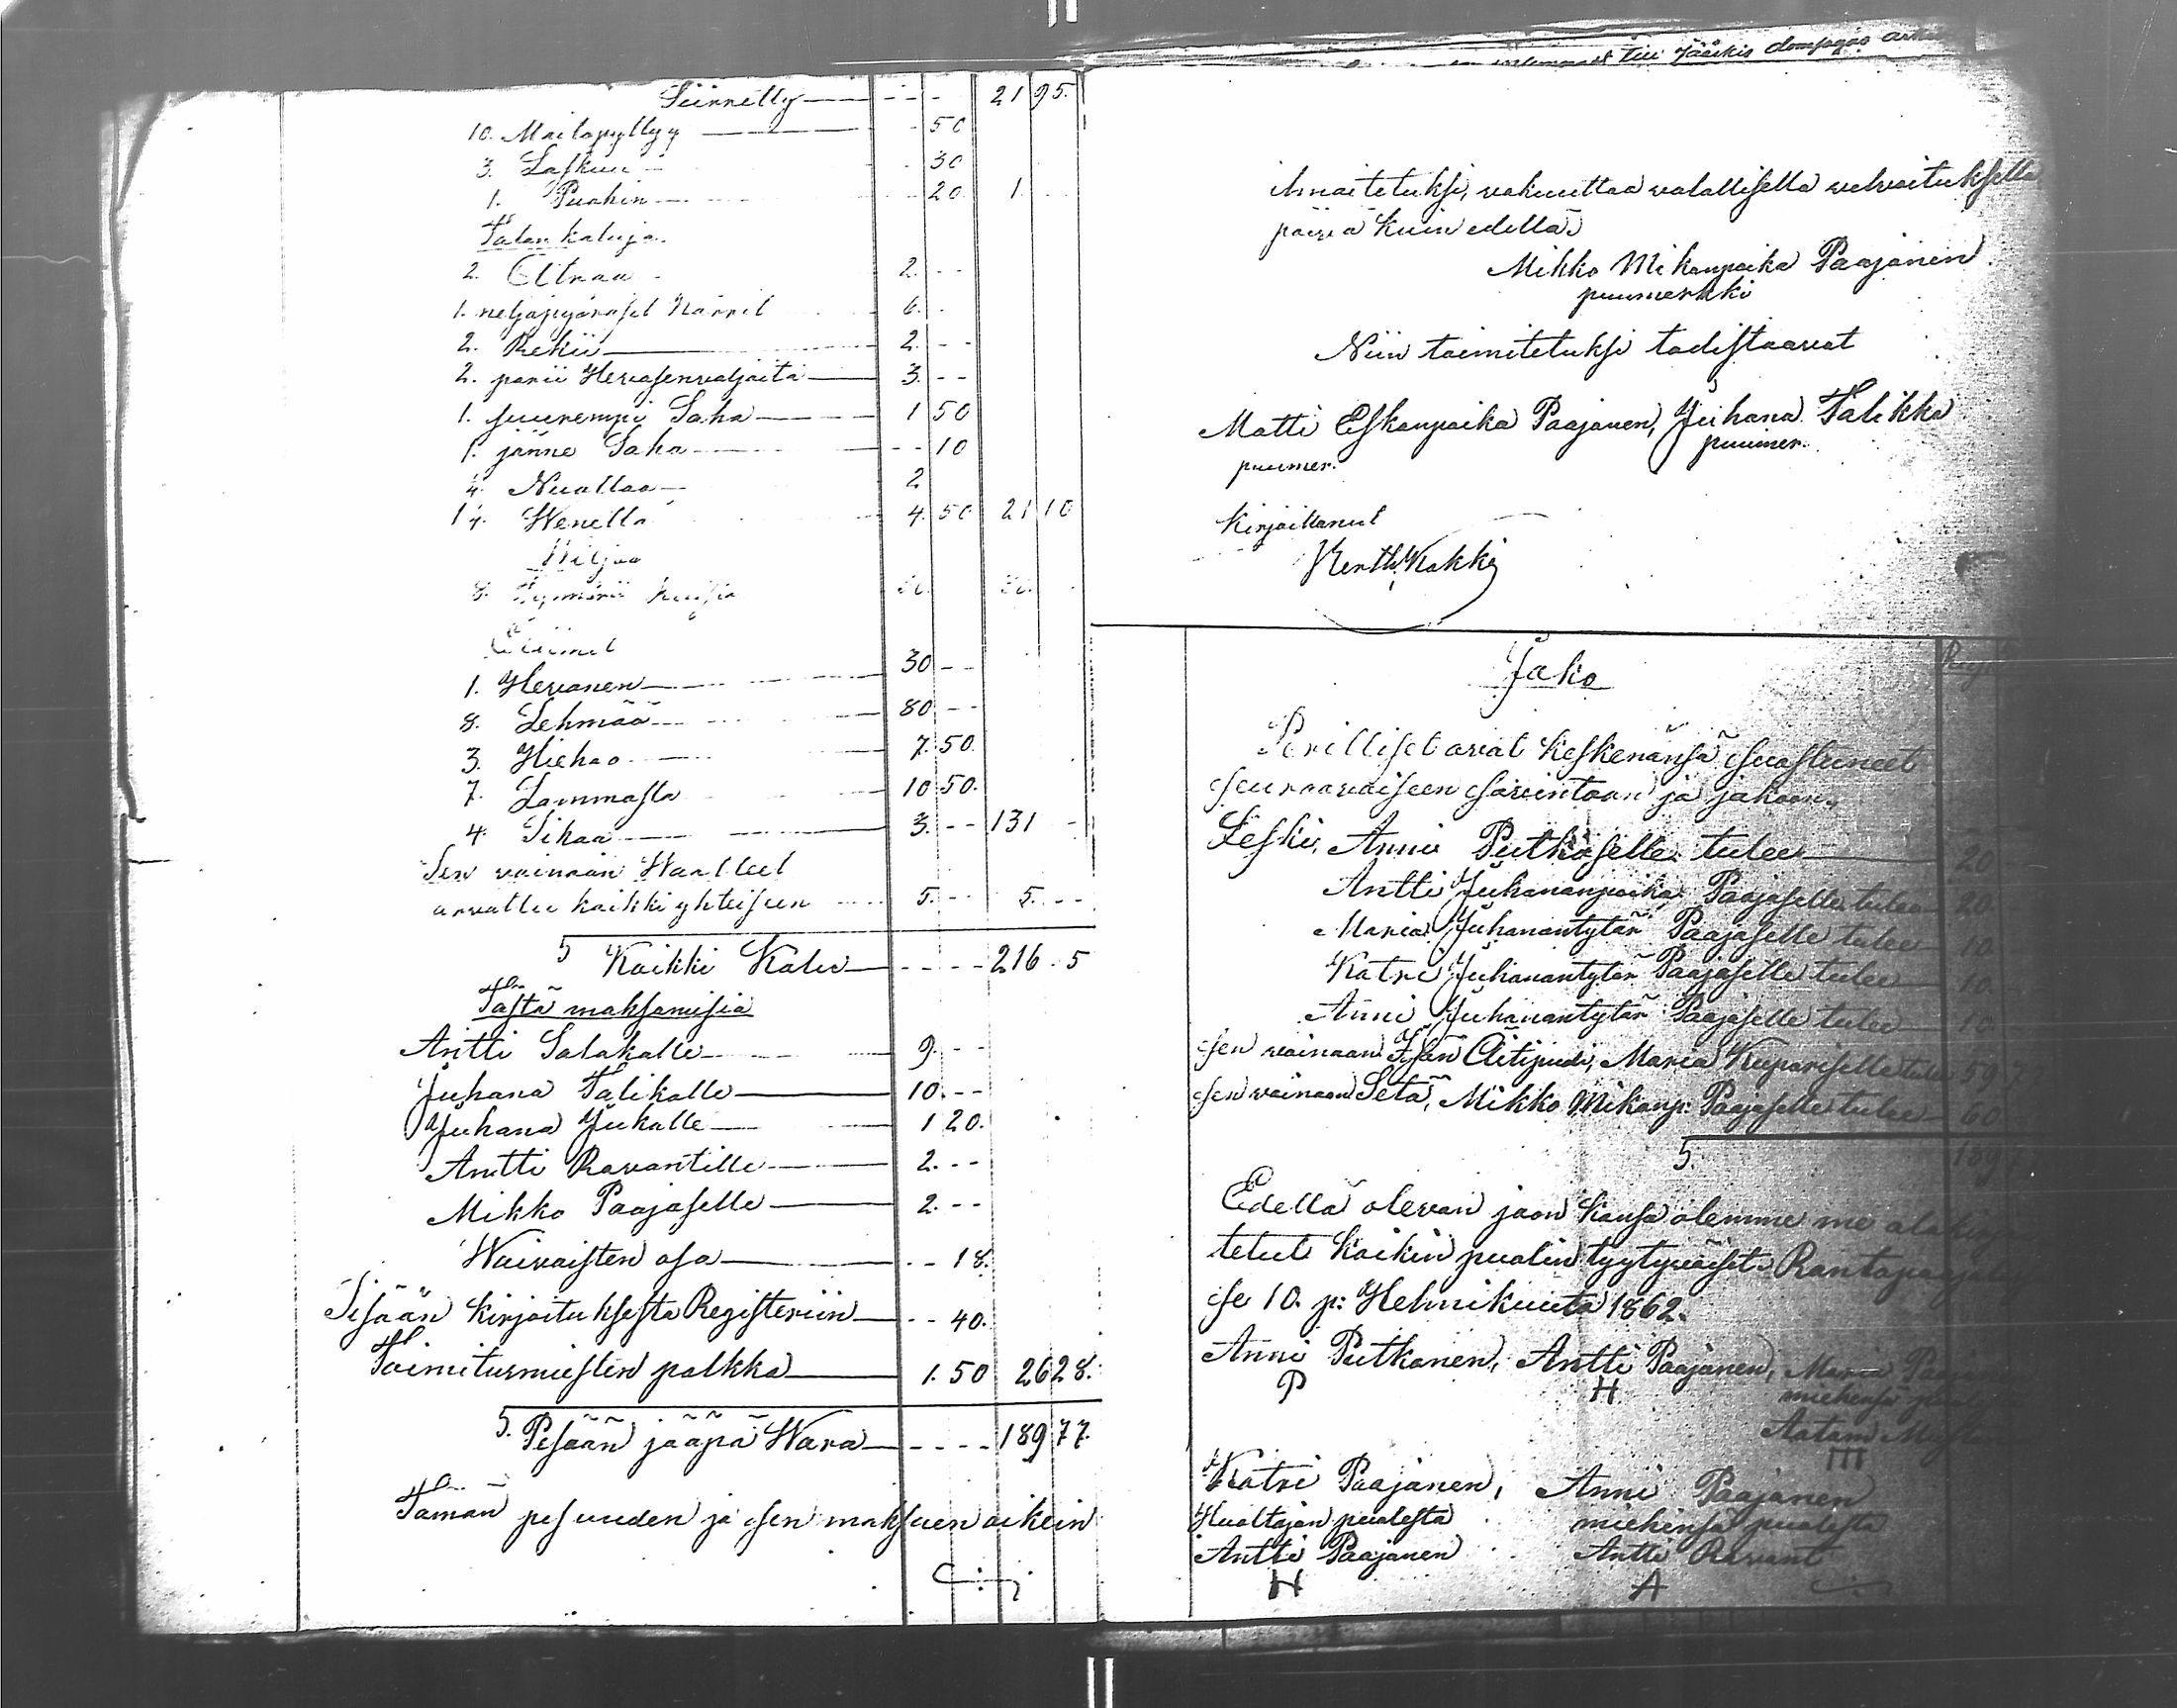 Siirretty - - - 21 95.
10. Maitopyttyy - 50
3. Laskuu - 30
1. Puahin - 20 1.
Talon kaluja.
2. Attraa 2. - -
1. neljäpyöräset Kärrit 6. -
2. Rekii 2. - -
2. parii Hevosenvaljaita 3. - -
1. suurempi Saha 1 50
1. jänne Saha - - 10
4. Nuottaa 2
14. Wenettä 4. 50 21 10
Viljaa
8. 
Eläimet
1. Hevonen 30 - -
8. Lehmää 80 - -
3. Hiehoo 7. 50.
7. Lammasta 10 50.
4. Sikaa 3. - - 131 -
Sen vainaan Waatteet
arvattu kaikki yhteiseen 5. - - 5. - -
S Kaikki Kalu - - - - 216. 5
Tästä maksamisia
Antti Salakalle 9. - -
Juhana Talikalle 10. - -
Juhana Jukalle 1 20.
Antti Ravantille 2. - -
Mikko Paajaselle 2. - -
Waivaisten osa - - 18.
Sisään kirjoituksesta Registeriin - - 40.
Toimitusmiesten palkka 1. 50 26 28.
S. Pesään jääpä Wara - - - - 189 77.
Tämän pesuuden ja sen maksuen oikein
till Jääkis
ilmoitetuksi, vakuuttaa valallisella velvoituksella
päivä kuin edellä
Mikko Mikonpoika Paajanen
puumerkki
Niin toimitetuksi todistaavat
Matti Eskonpoika Paajanen, Juhana Talikka
puumer. puumer.
Kirjoittanut
Jako
Perilliset ovat keskenänsä suostuneet
seuraavaiseen sovintoon ja jakoon.
Leski, Anni Putkoselle tulee 20
Antti Juhananpoika Paajaselle tulee 20.
Maria Juhanantytär Paajaselle tulee 10
Katri Juhanantytär Paajaselle tulee 10.
Anni Juhanantytär Paajaselle tulee 10
sen vainaan Isän Äitipuoli, Maria Kupariselle tulee 59 7
sen vainaan Setä, Mikko Mikonp: Paajaselle tulee 60
S. 189 7
Edellä olevan jaon kansa olemme me
tetut kaikin puolin tyytyväiset.
se 10. p: Helmikuuta 1862.
Anni Putkonen, Antti Paajanen, Maria
P H miehensä
Aatam
III
Katri Paajanen, Anni Paajanen
Huoltajan puolesta miehensä puolesta
Antti Paajanen Antti Ravant
H A